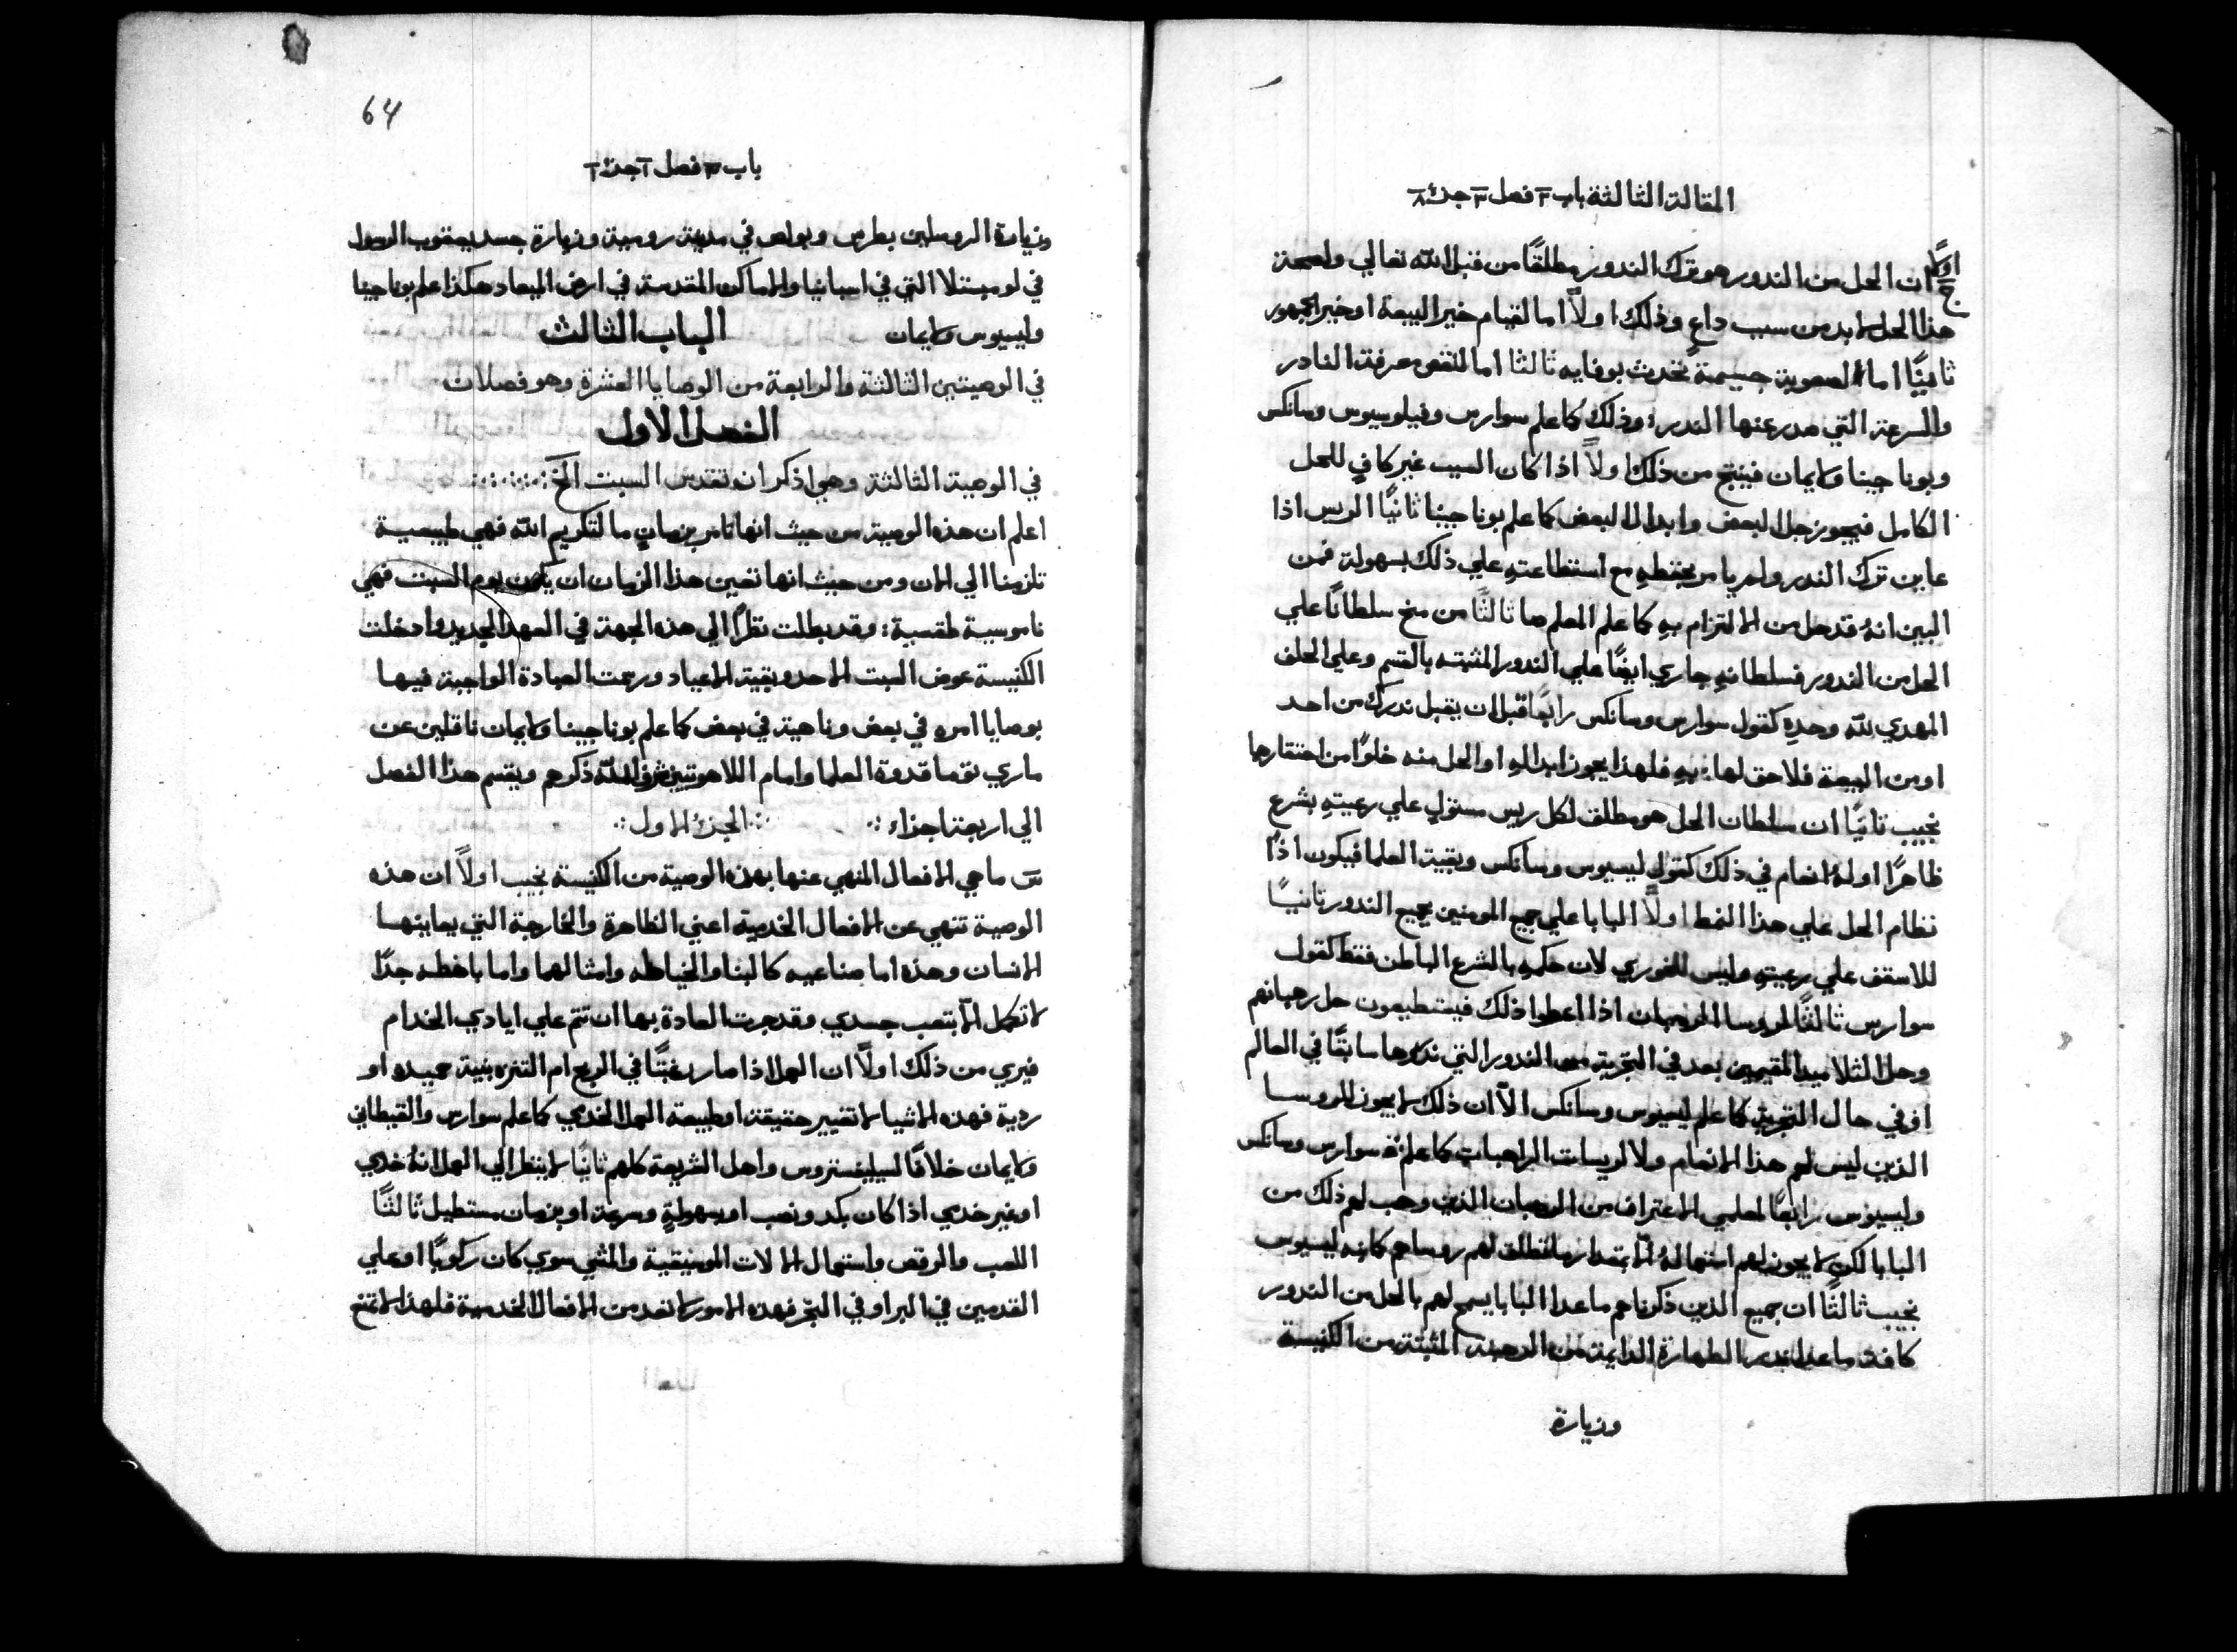 المقالة الثالثة باب ٣ فصل ٣ جزء ٨
اولًا ان الحل من الندور هو ترك الندور مطلقًا من قبل الله تعالي ولصحة
ج
هذا الحل لا بد من سبب داعٍ وذلك اولًا اما لقيام خير البيعة او خير الجمهور
ثانيًا اما لصعوبة جسيمة تحدث بوفايه ثالثا اما لنقص معرفة النادر
والسرعة التي صدر عنها الندر وذلك كما علم سوارس وفيلوسيوس وسانكس
وبوناجينا ولايمان فينتج من ذلك اولًا اذا كان السبب غير كافٍ للحل
الكامل فيجوز حل البعض وابدال البعض كما علم بوناجينا ثانيًا الريس اذا
عاين ترك الندر ولم يامر بحفظهِ مع استطاعتهِ علي ذلك بسهولة فمن
البين انهُ قد حل من الالتزام بهِ كما علم المعلم صا ثالثًا من منح سلطانًا علي
الحل من الندور فسلطانهِ جاري ايضًا علي الندور المثبته بالقسم وعلي الحلف
المهدي لله وحدهِ كقول سوارس وسانكس رابعًا قبل ان يقبل ندرك من احد
او من البيعة فلا حق لها بهِ فلهذا يجوز ابدالهِ او الحل منه خلوًا من احتقارها
نجيب ثانيًا ان سلطان الحل هو مطلق لكل ريس مستولٍ علي رعيتهِ بشرع
ظاهرًا اولهُ انعام في ذلك كقول ليسيوس وسانكس وبقية العلما فيكون اذًا
نظام الحل علي هذا النمط اولًا البابا علي جميع المومنين بجميع الندور ثانيًا
للاسقف علي رعيتهِ وليس للخوري لان حكمهِ بالشرع الباطن فقط كقول
سوارس ثالثًا لروسا الرهبان اذا اعطوا ذلك فيستطيعون حل رهبانهم
وحل التلاميد المقيمين بعد في التجربة من الندور التي ندروها سابقًا في العالم
او في حال التجربة كما علم ليسيوس وسانكس الا ان ذلك لا يجوز للروسا
الذين ليس لهم هذا الانعام ولا لريسات الراهبات كما علمهُ سوارس وسانكس
وليسيوس رابعًا لمعلمي الاعتراف من الرهبان الذين وهب لهم ذلك من
البابا لكن لا يجوز لهم استعمالهُ الا بمقدار ما تطلق لهم روساهم كانه ليسيوس
نجيب ثالثًا ان جميع الذين ذكرناهم ما عدا البابا يسمح لهم بالحل من الندور
كافة ما عدا ندر الطهارة الدايمة من الرهبنة المثبتة من الكنيسة
وزيارة
64
باب ٣ فصل ١ جزء ١
وزيارة الرسولين بطرس وبولص في مدينة رومية وزيارة جسد يعقوب الرسول
في لومبستلا التي في اسبانيا والاماكن المقدسة في ارض الميعاد هكذا علم بوناجينا
وليسيوس ولايمان الباب الثالث
في الوصيتين الثالثة والرابعة من الوصايا العشرة وهو فصلات
الفصل الاول
في الوصية الثالثة وهي اذكر ان تقدس السبت الخ
اعلم ان هذه الوصية من حيث انها تامر بزمانٍ ما لتكريم الله فهي طبيعية
تلزمنا الي الان ومن حيث انها تعين هذا الزمان ان يكون يوم السبت فهي
ناموسية طقسية وقد بطلت نظرًا الي هذه الجهة في العهد الجديد وادخلت
الكنيسة عوض السبت الاحد وبقية الاعياد ورتبت العبادة الواجبة فيها
بوصايا امره في بعض وناهية في بعض كما علم بوناجينا ولايمان ناقلين عن
ماري توما قدوة العلما وامام اللاهوتيين شرف الله ذكرهم ويقسم هذا الفصل
الي اربعة اجزاء الجزء الاول
س ما هي الافعال المنهي عنها بهذه الوصية من الكنيسة نجيب اولًا ان هذه
الوصية تنهي عن الافعال الخدمية اعني الظاهرة والخارجة التي يعاينها
الانسان وهذه اما صناعيه كالبنا والخياطه وامثالهما واما باهظه جدًا
لا تكمل الا بتعب جسدي وقد جرت العادة بها ان تتم علي ايادي الخدام
فيري من ذلك اولًا ان العمل اذا صار رغبتًا في الربح ام التنزه بنية حميده او
ردية فهذه الاشيا لا تغيير حقيقة او طبيعة العمل الخدمي كما علم سوارس والقيطاني
ولايمان خلافًا لسيليفستروس واهل الشريعة كلهم ثانيًا لا ينظر الي العمل انهُ خدمي
او غير خدمي اذا كان بكد وتعب او بسهولةٍ وسرعة او بزمان مستطيل ثالثًا
اللعب والرقص واستعمال الالات الموسيقية والمشي سوي كان ركوبًا او علي
القدمين في البر او في البحر فهذه الامور لا تعد من الافعال الخدمية فلهذا لا تمتنع